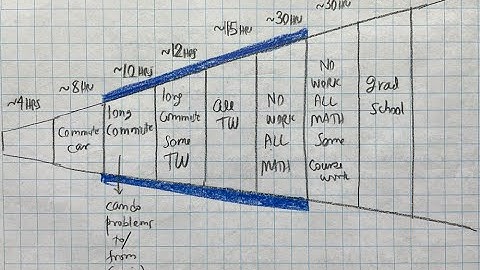 ~4HRS
~8HRS
~10HRS
~12HRS
~15HRS
~30HRS
~30HRS
Commute
car
long
Commute
long
Commute
Some
TW
all
TW
NO
WORK
ALL
MATH
NO
WORK
ALL
MATH
Some
Course
work
grad
School
can do
problems
to/
from